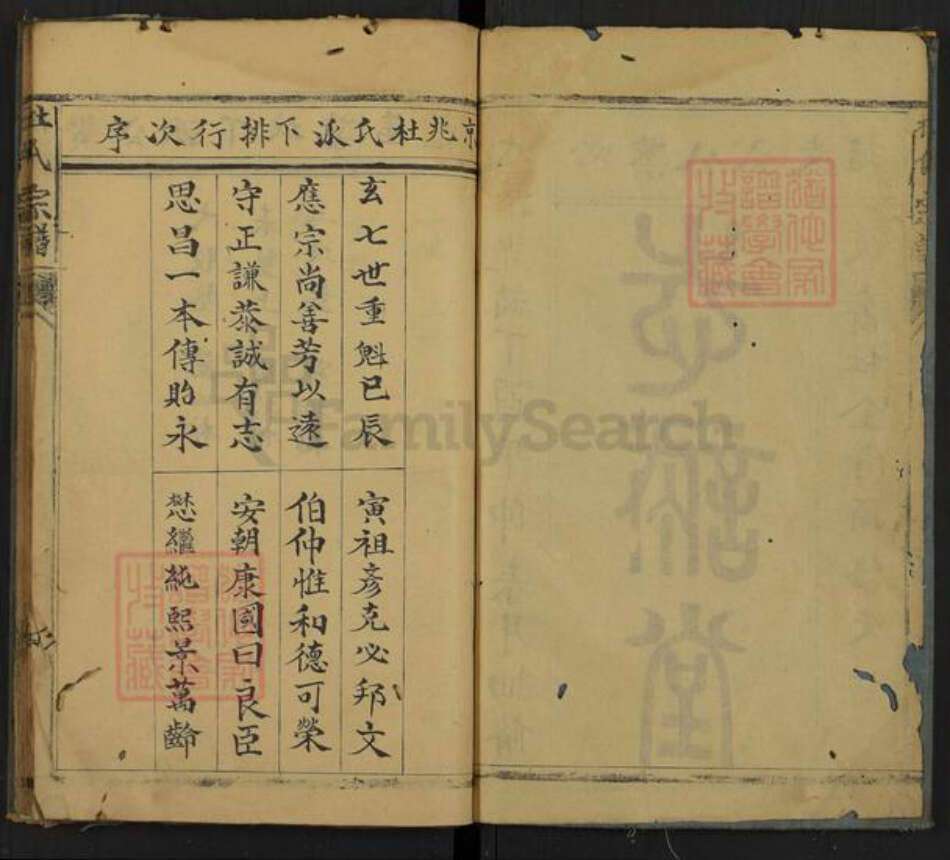 京兆杜氏派下排行次序
玄七世重魁巳辰
寅祖彥克必邦文
應宗尚善芳以遠
伯仲惟和德可榮
守正謙恭誠有志
安朝康國曰良臣
思昌一本傳貽永
懋繼純熙景萬齡
杜氏宗譜
FamilySearch